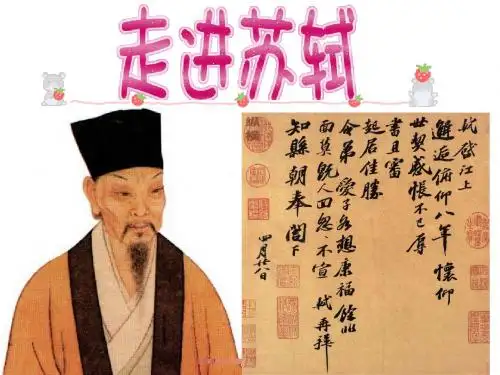 走进苏轼
軾啟江上
邂逅俯仰八年懷仰
世契感悵不已辱
書且審
起居佳勝
令弟愛子各想康福餘非
面莫既人回忽忽不宣軾再拜
知縣朝奉閣下
四月廿八日